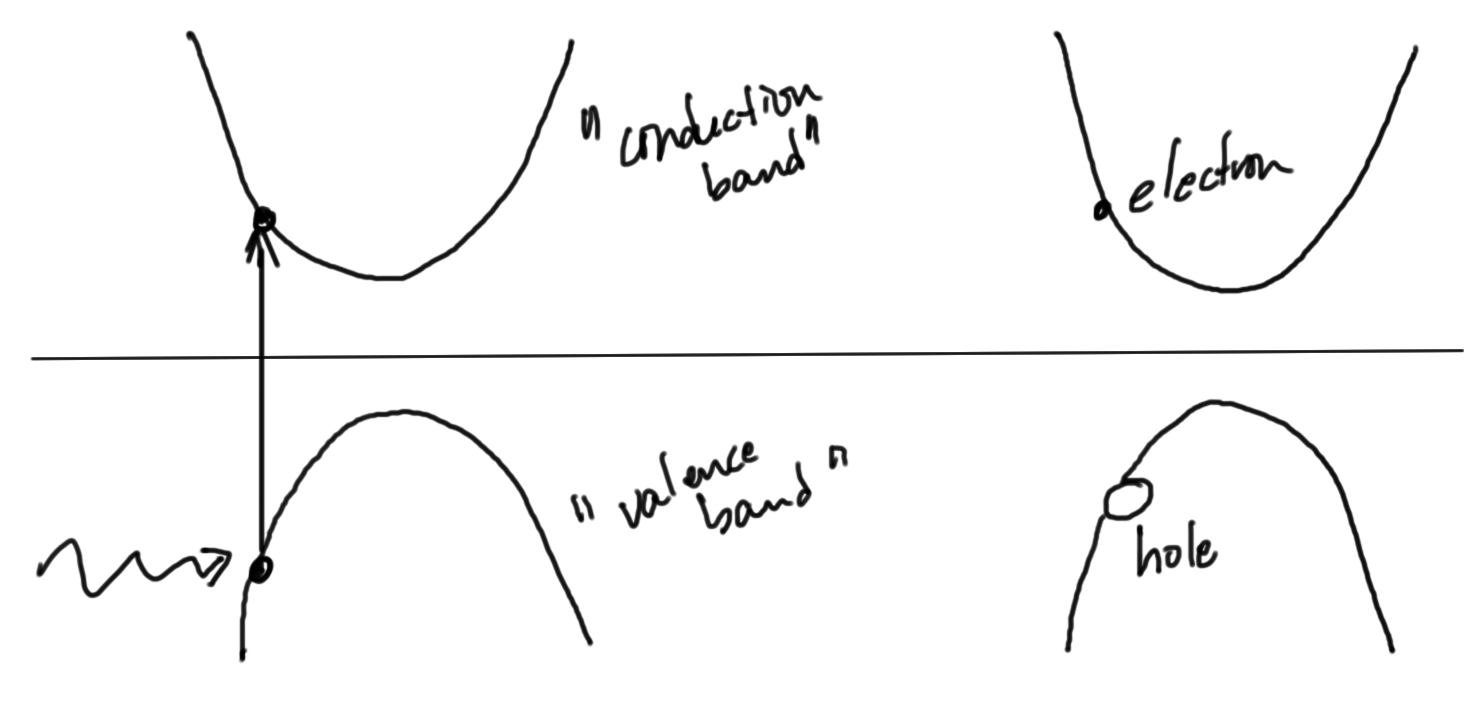 "conduction
band"
electron
"valence
band"
hole